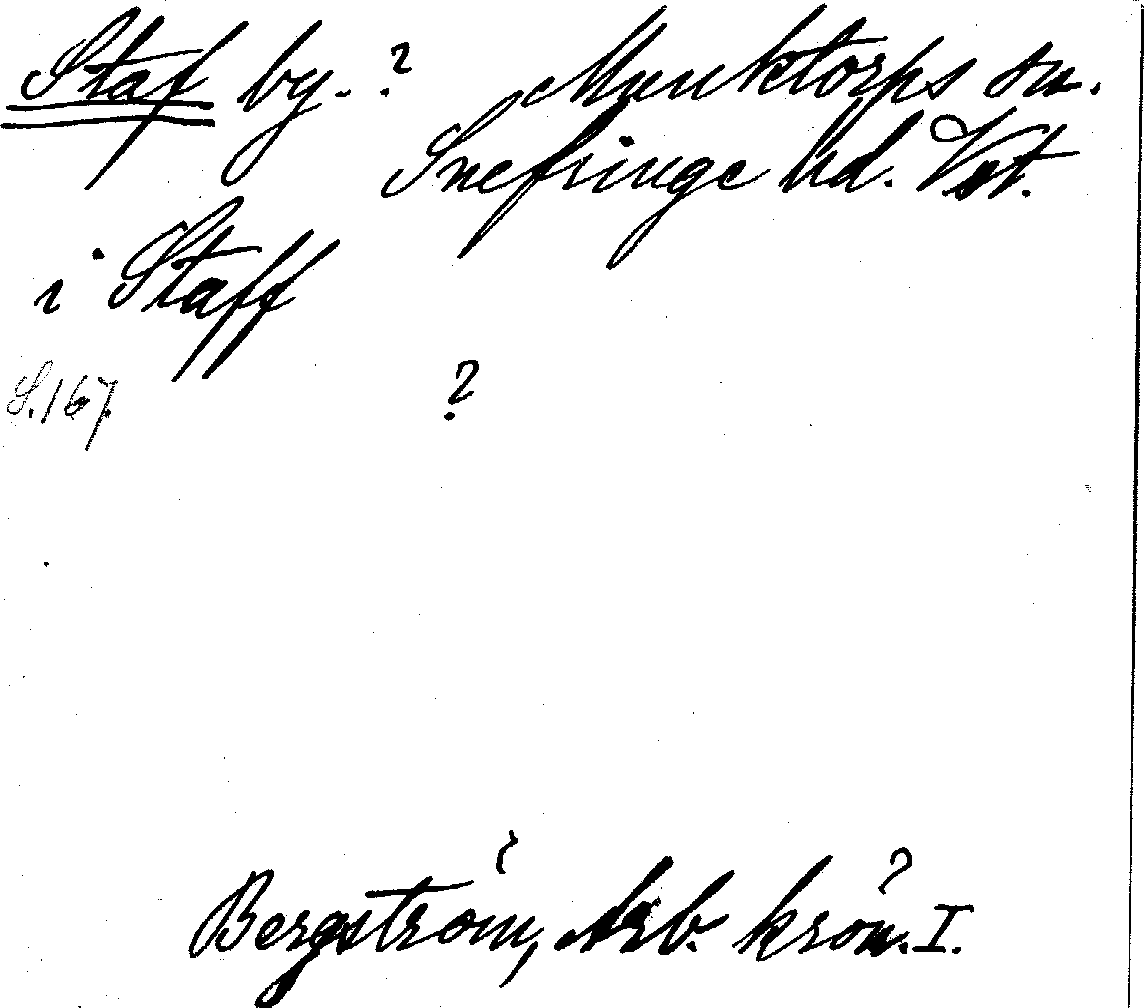 Staf by. ? Munktorps sn.
Snefringe hd. Vst.
i Staff
S. 167. ?
Bergström, Arb. krön. I.